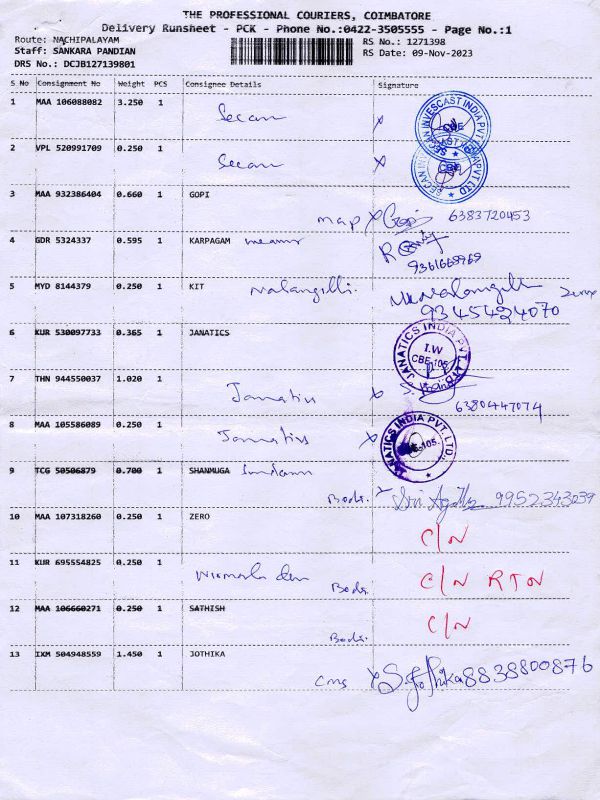 THE PROFESSIONAL COURIERS, COIMBATORE
Delivery Runsheet - PCK - Phone No.:0422-3505555 - Page No.:1
Route: NACHIPALAYAM RS No.: 1271398
Staff: SANKARA PANDIAN RS Date: 09-Nov-2023
DRS No.: DCJB127139801
S No Consignment No Weight PCS Consignee Details Signature
1 MAA 106088082 3.250 1 Secan x SECAN INVESCAST INDIA PVT LTD CBE
2 VPL 520991709 0.250 1 Secan x CBE
3 MAA 932386404 0.660 1 GOPI
map x Gopi 6383720453
4 GDR 5324337 0.595 1 KARPAGAM means
9361669969
5 MYD 8144379 0.250 1 KIT Malangilli.
9345424070
6 KUR 530097733 0.365 1 JANATICS JANATICS INDIA PVT. LTD. I.W CBE-105.
7 THN 944550037 1.020 1 Janatics x
6380447074
8 MAA 105586089 0.250 1 Janatics x JANATICS INDIA PVT. LTD. CBE-105.
9 TCG 50506879 0.700 1 SHANMUGA Sundaram
Bodi. 9952343039
10 MAA 107318260 0.250 1 ZERO
C/N
11 KUR 695554825 0.250 1 Nirmala dev
Bodi. C/N RTN
12 MAA 106660271 0.250 1 SATHISH
Bodi. C/N
13 IXM 504948559 1.450 1 JOTHIKA
cms x S. Jothika 8838800876